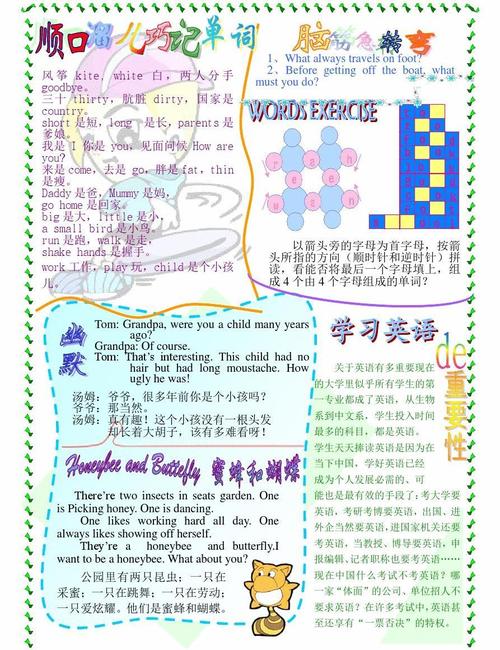 顺口溜儿巧记单词
风筝 kite, white 白，两人分手
goodbye。
三十 thirty, 肮脏 dirty，国家是
country。
short 是短，long 是长，parents 是
爹娘。
我是 I 你是 you, 见面问候 How are
you?
来是 come，去是 go，胖是 fat，thin
是瘦。
Daddy 是爸，Mummy 是妈，
go home 是回家。
big 是大，little 是小，
a small bird 是小鸟。
run 是跑，walk 是走，
shake hands 是握手。
work 工作，play 玩，child 是个小孩
儿。
脑筋急转弯
1、What always travels on foot?
2、Before getting off the boat, what
must you do?
WORDS EXERCISE
以箭头旁的字母为首字母，按箭
头所指的方向（顺时针和逆时针）拼
读，看能否将最后一个字母填上，组
成 4 个由 4 个字母组成的单词？
幽默
Tom: Grandpa, were you a child many years
ago?
Grandpa: Of course.
Tom: That's interesting. This child had no
hair but had long moustache. How
ugly he was!
汤姆：爷爷，很多年前你是个小孩吗？
爷爷：那当然。
汤姆：真有趣！这个小孩没有一根头发
却长着大胡子，该有多难看呀！
Honeybee and Buttefly 蜜蜂和蝴蝶
There're two insects in seats garden. One
is Picking honey. One is dancing.
One likes working hard all day. One
always likes showing off herself.
They're a honeybee and butterfly.I
want to be a honeybee. What about you?
公园里有两只昆虫；一只在
采蜜；一只在跳舞；一只在劳动；
一只爱炫耀。他们是蜜蜂和蝴蝶。
学习英语de重要性
关于英语有多重要现在
的大学里似乎所有学生的第
一专业都成了英语，从生物
系到中文系，学生投入时间
最多的科目，都是英语。
学生天天捧读英语是因为在
当下中国，学好英语已经
成为个人发展必需的、可
能也是最有效的手段了：考大学要
英语，考研考博要英语，出国、进
外企当然要英语，进国家机关还要
考英语，当教授、博导要英语，申
报编辑、记者职称也要考英语……
现在中国什么考试不考英语？哪
一家“体面”的公司、单位招人不
要求英语？在许多考试中，英语甚
至还享有“一票否决”的特权。